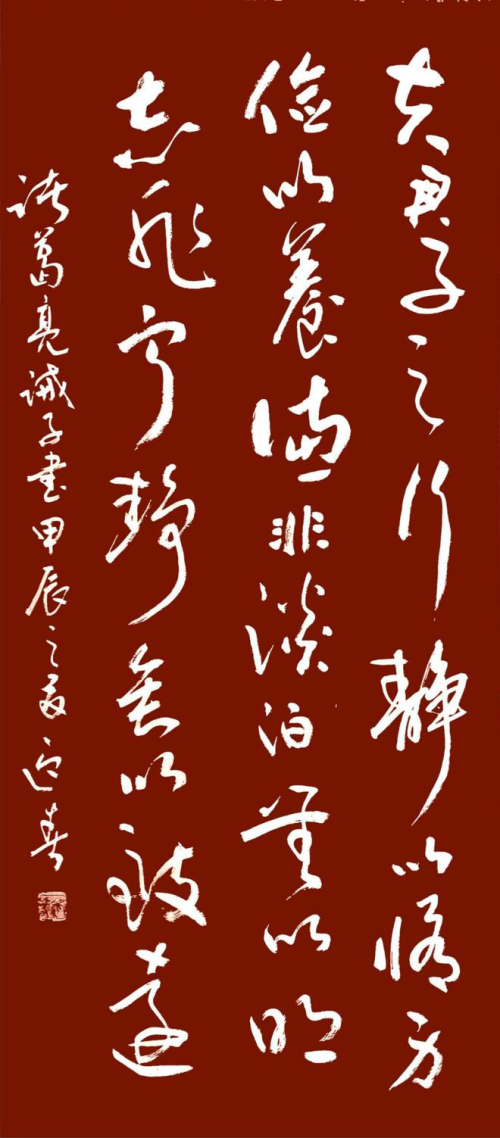 夫君子之行静以修身
俭以養德非淡泊無以明
志非宁静無以致遠
诸葛亮诫子書甲辰之夏迎春